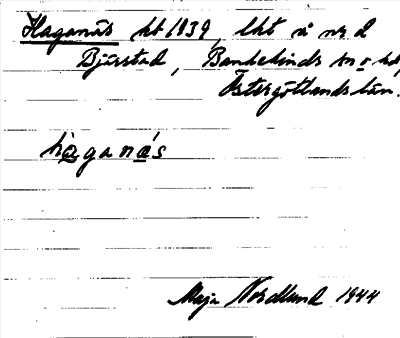 Haganäs hb 1939, lht å nr 2
Bjärstad, Bankekinds sn o hd,
Östergötlands län.
hàganä́s
Maja Nordlund 1944